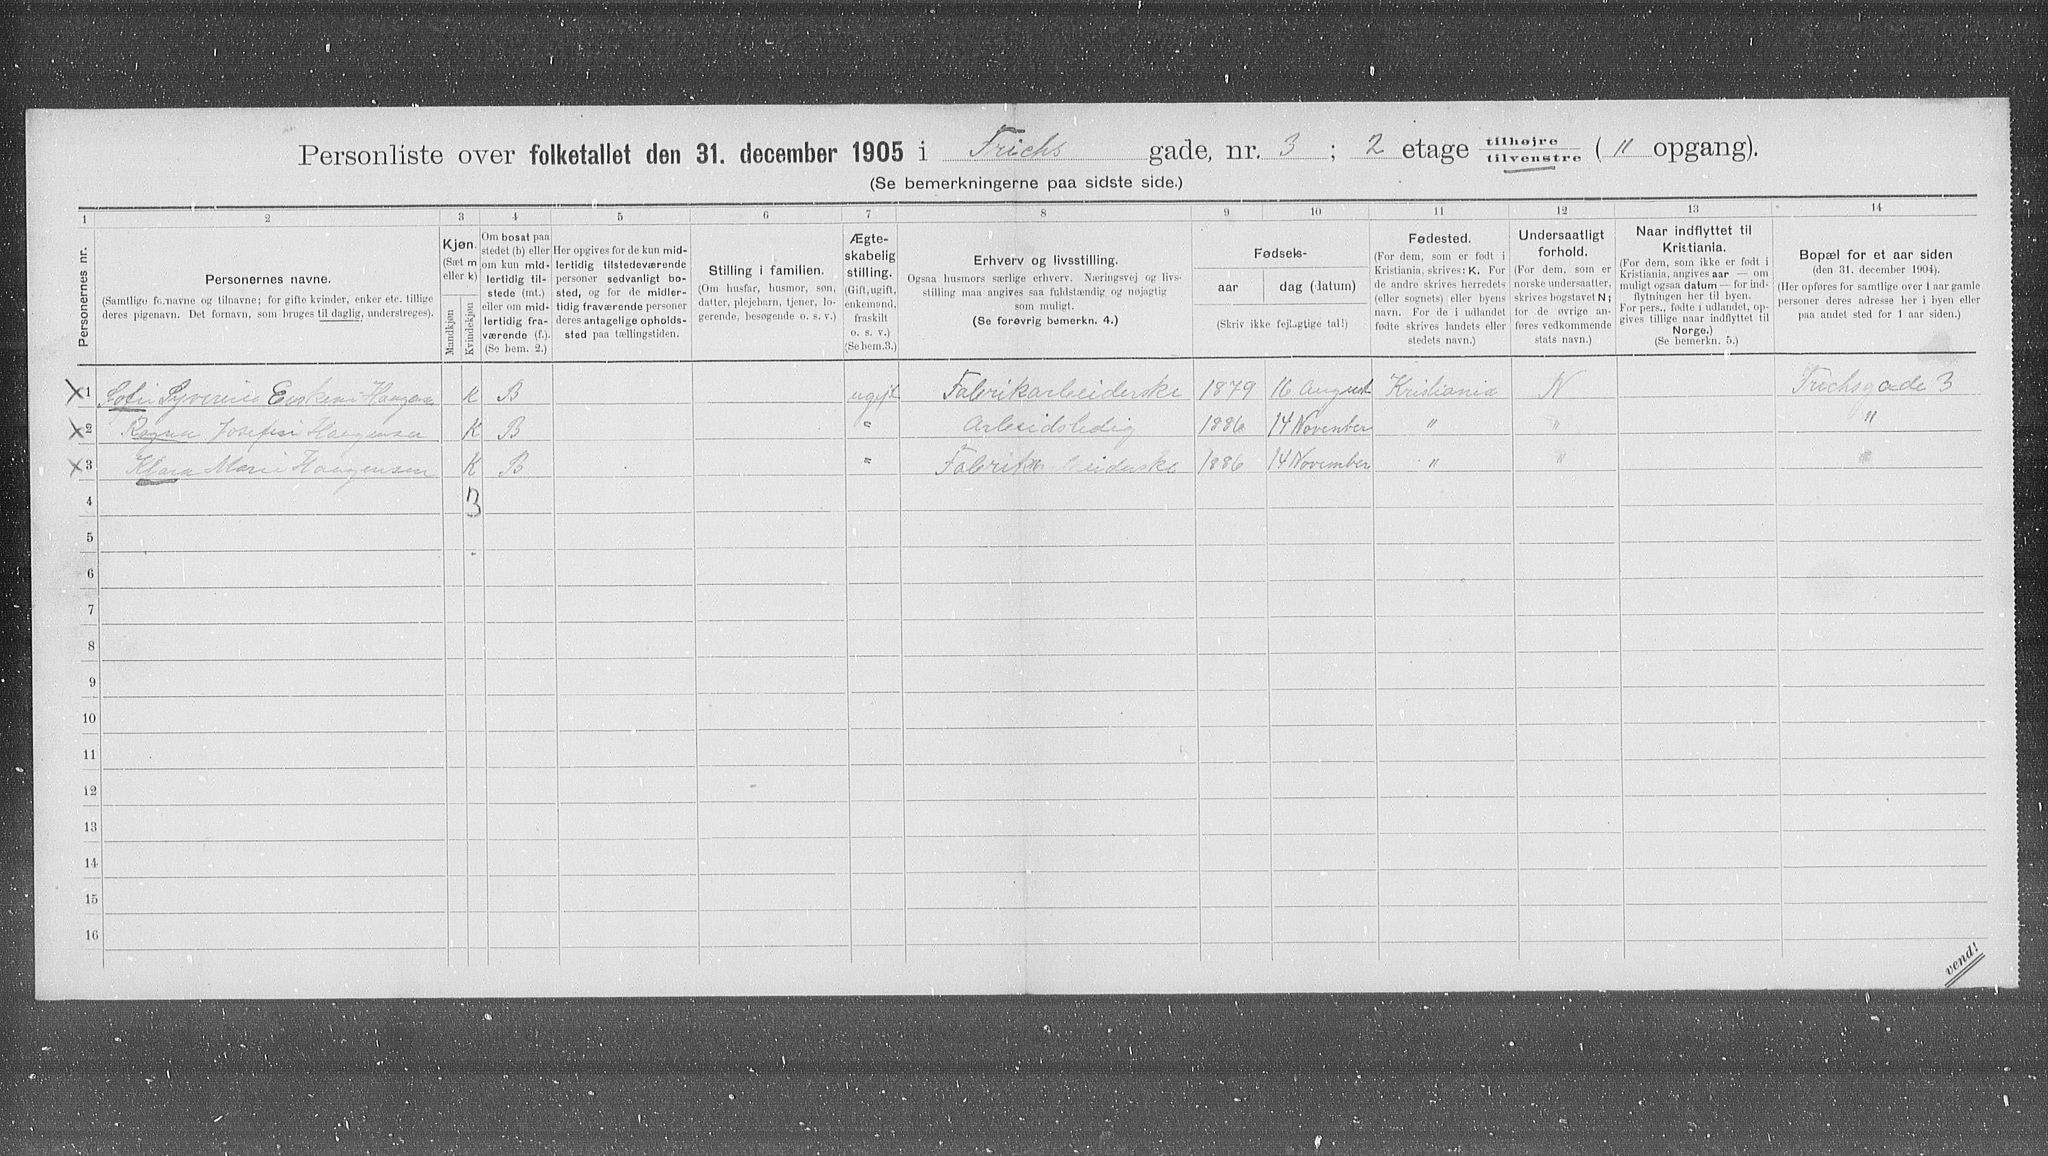 Personliste over folketallet den 31. december 1905 i Frichs gade, nr. 3 ; 2 etage tilhøjre tilvenstre ( " opgang).
(Se bemerkningerne paa sidste side.)
1 2 3 4 5 6 7 8 9 10 11 12 13 14
Personernes nr.
Personernes navne.
(Samtlige fornavne og tilnavne; for gifte kvinder, enker etc. tillige deres pigenavn. Det fornavn, som bruges til daglig, understreges).
Kjøn.
(Sæt m eller k)
Mandkjøn
Kvindekjøn
Om bosat paa stedet (b) eller om kun midlertidig tilstede (mt.) eller om midlertidig fraværende (f.). (Se bem. 2.)
Her opgives for de kun midlertidig tilstedeværende personer sedvanligt bosted, og for de midlertidig fraværende personer deres antagelige opholdssted paa tællingstiden.
Stilling i familien.
(Om husfar, husmor, søn, datter, plejebarn, tjener, logerende, besøgende o. s. v.)
Ægteskabelig stilling.
(Gift, ugift, enkemand, fraskilt o. s. v.)
(Se bem. 3.)
Erhverv og livsstilling.
Ogsaa husmors særlige erhverv. Næringsvej og livsstilling maa angives saa fuldstændig og nøjagtig som muligt.
(Se forøvrig bemerkn. 4.)
Fødsels-
aar
dag (datum)
(Skriv ikke fejlagtige tal!)
Fødested.
(For dem, som er født i Kristiania, skrives: K. For de andre skrives herredets (eller sognets) eller byens navn. For de i udlandet fødte skrives landets eller stedets navn.)
Undersaatligt forhold.
(For dem, som er norske undersaatter, skrives bogstavet N; for de øvrige anføres vedkommende stats navn.)
Naar indflyttet til Kristiania.
(For dem, som ikke er født i Kristiania, angives aar — om muligt ogsaa datum — for indflytningen her til byen. For pers., fødte i udlandet, opgives tillige naar indflyttet til Norge.)
(Se bemerkn. 5.)
Bopæl for et aar siden
(den 31. december 1904).
(Her opføres for samtlige over 1 aar gamle personer deres adresse her i byen eller paa andet sted for 1 aar siden.)
1 Sofie K B ugift Fabrikarbeiderske 1879 16 August Kristiania N Frichsgade 3
2 Ragna Josefine Haagensen K B " Arbeidsledig 1886 14 November " " "
3 Klara Marie Haagensen K B " Fabrikarbeiderske 1886 14 November " " "
4 3
5
6
7
8
9
10
11
12
13
14
15
16
vend!